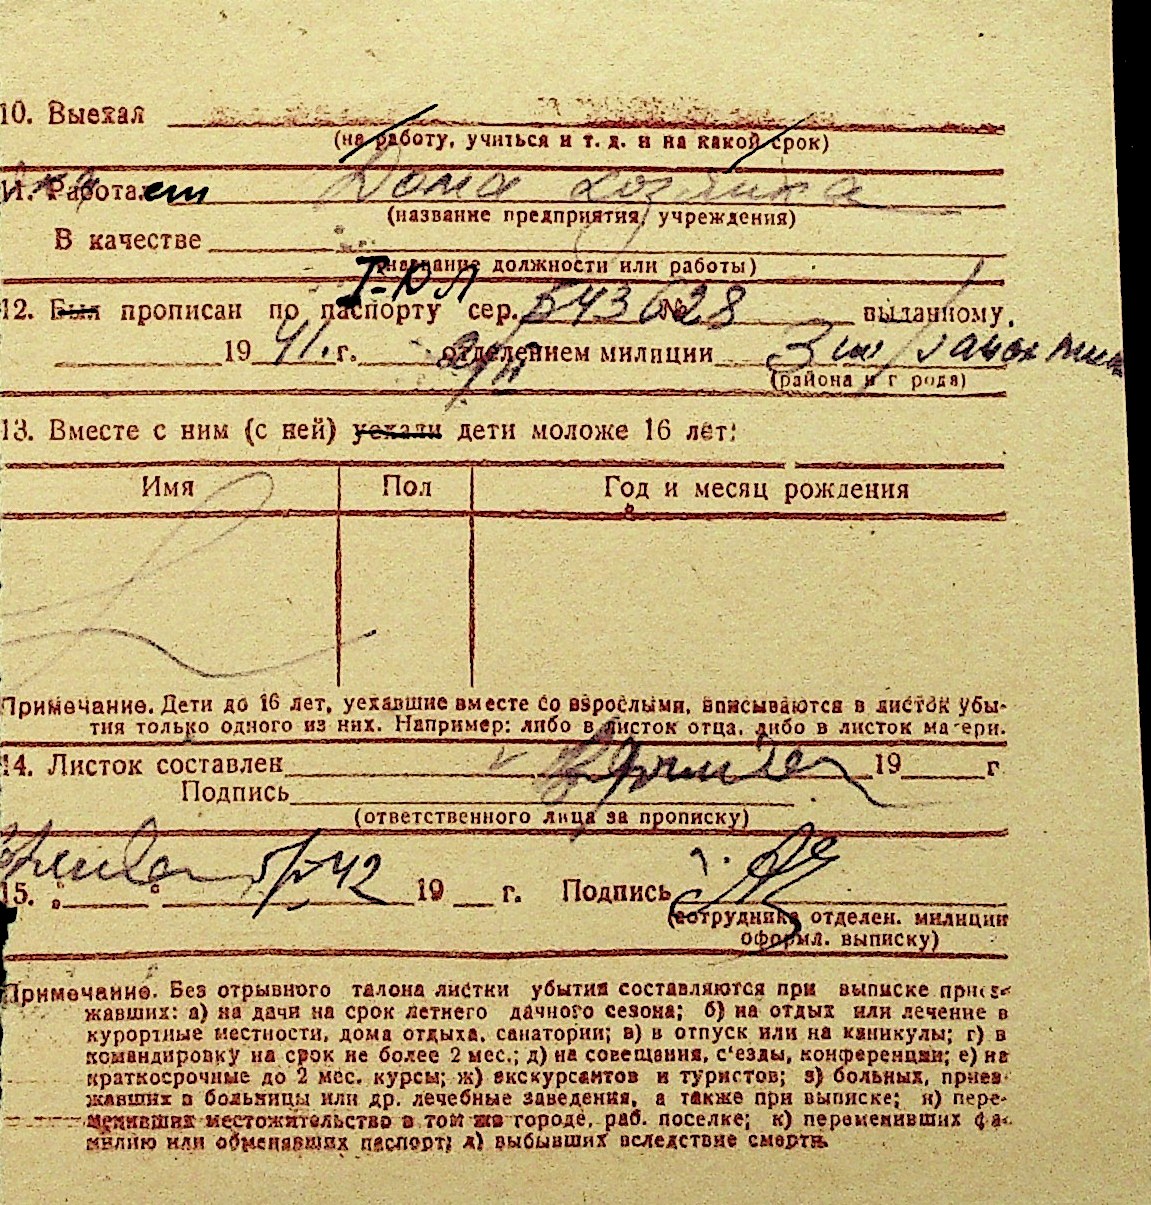 10. Выехал
(на работу, учиться и т. д. и на какой срок)
11. Работает Дома хозяйка
(название предприятия, учреждения)
В качестве
(название должности или работы)
I-ЮЛ
12. Был прописан по паспорту сер. 543628 № выданному,
19 41. г. отделением милиции 3
(района и г рода)
13. Вместе с ним (с ней) уехали дети моложе 16 лет:
Имя Пол Год и месяц рождения
Примечание. Дети до 16 лет, уехавшие вместе со взрослыми, вписываются в листок убы-
тия только одного из них. Например: либо в листок отца, либо в листок матери.
14. Листок составлен 19 г
Подпись
(ответственного лица за прописку)
15. " " 42 19 г. Подпись
(сотрудника отделен. милиции
оформл. выписку)
Примечание. Без отрывного талона листки убытия составляются при выписке приез-
жавших: а) на дачи на срок летнего дачного сезона; б) на отдых или лечение в
курортные местности, дома отдыха, санатории; в) в отпуск или на каникулы; г) в
командировку на срок не более 2 мес.; д) на совещания, с'езды, конференции; е) на
краткосрочные до 2 мес. курсы; ж) экскурсантов и туристов; з) больных, приез-
жавших в больницы или др. лечебные заведения, а также при выписке; и) пере-
менивших местожительство в том же городе, раб. поселке; к) переменивших фа-
милию или обменявших паспорт; л) выбывших вследствие смерти.